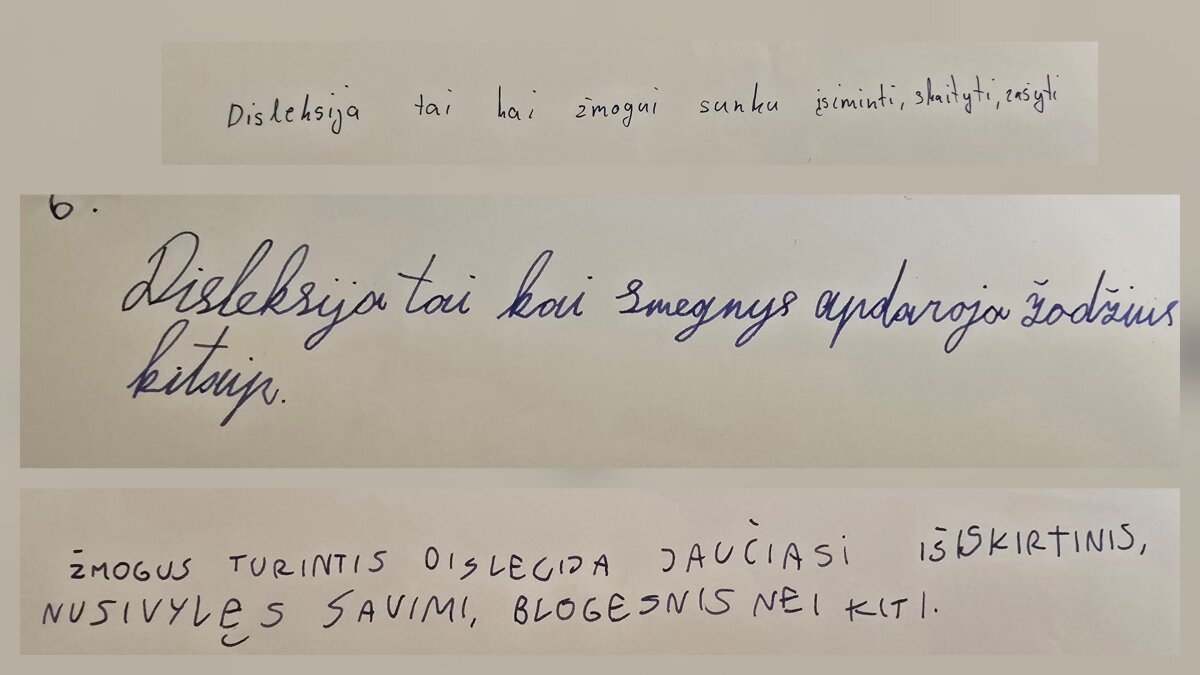 Disleksija tai kai žmogui sunku įsiminti, skaityti, rašyti
6.
Disleksija tai kai smegnys apdaroja žodžius
kitaip.
ŻMOGUS TURINTIS DISLECIJA JAUČIASI IŠSKIRTINIS,
NUSIVYLĘS SAVIMI, BLOGESNIS NEI KITI.